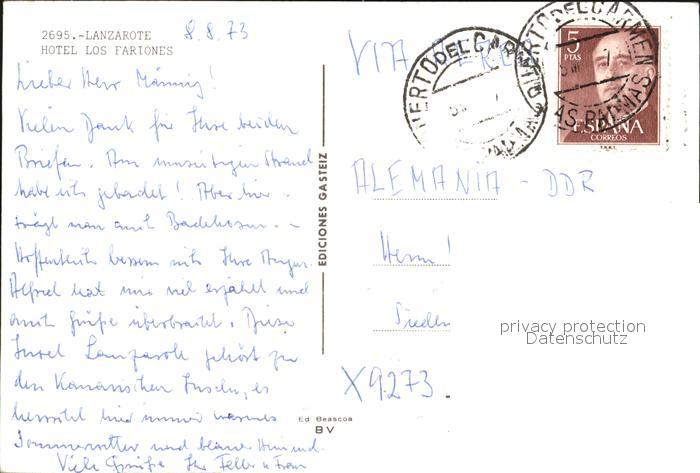 2695.-LANZAROTE
HOTEL LOS FARIONES
8.8.73
Lieber Herr Männig!
Vielen Dank für Ihre beiden
Briefen. Am Strand
habe ich gebadet! Aber hier
trägt man auch Badehosen. -
Hoffentlich bessern sich Ihre Augen.
Alfred hat mir viel erzählt und
auch Grüße überbracht. Diese
Insel Lanzarote gehört zu
den Kanarischen Inseln, es
herrscht hier immer warmes
Sommerwetter und blauer Himmel.
Viele Grüße Ihr Feller u Frau
EDICIONES GASTEIZ
Ed Beascoa
BV
VIA AEREA
PUERTO DEL CARMEN
PUERTO DEL CARMEN
LAS PALMAS
5
PTAS
ESPAÑA
CORREOS
ALEMANIA - DDR
Herrn!
X9273
privacy protection
Datenschutz